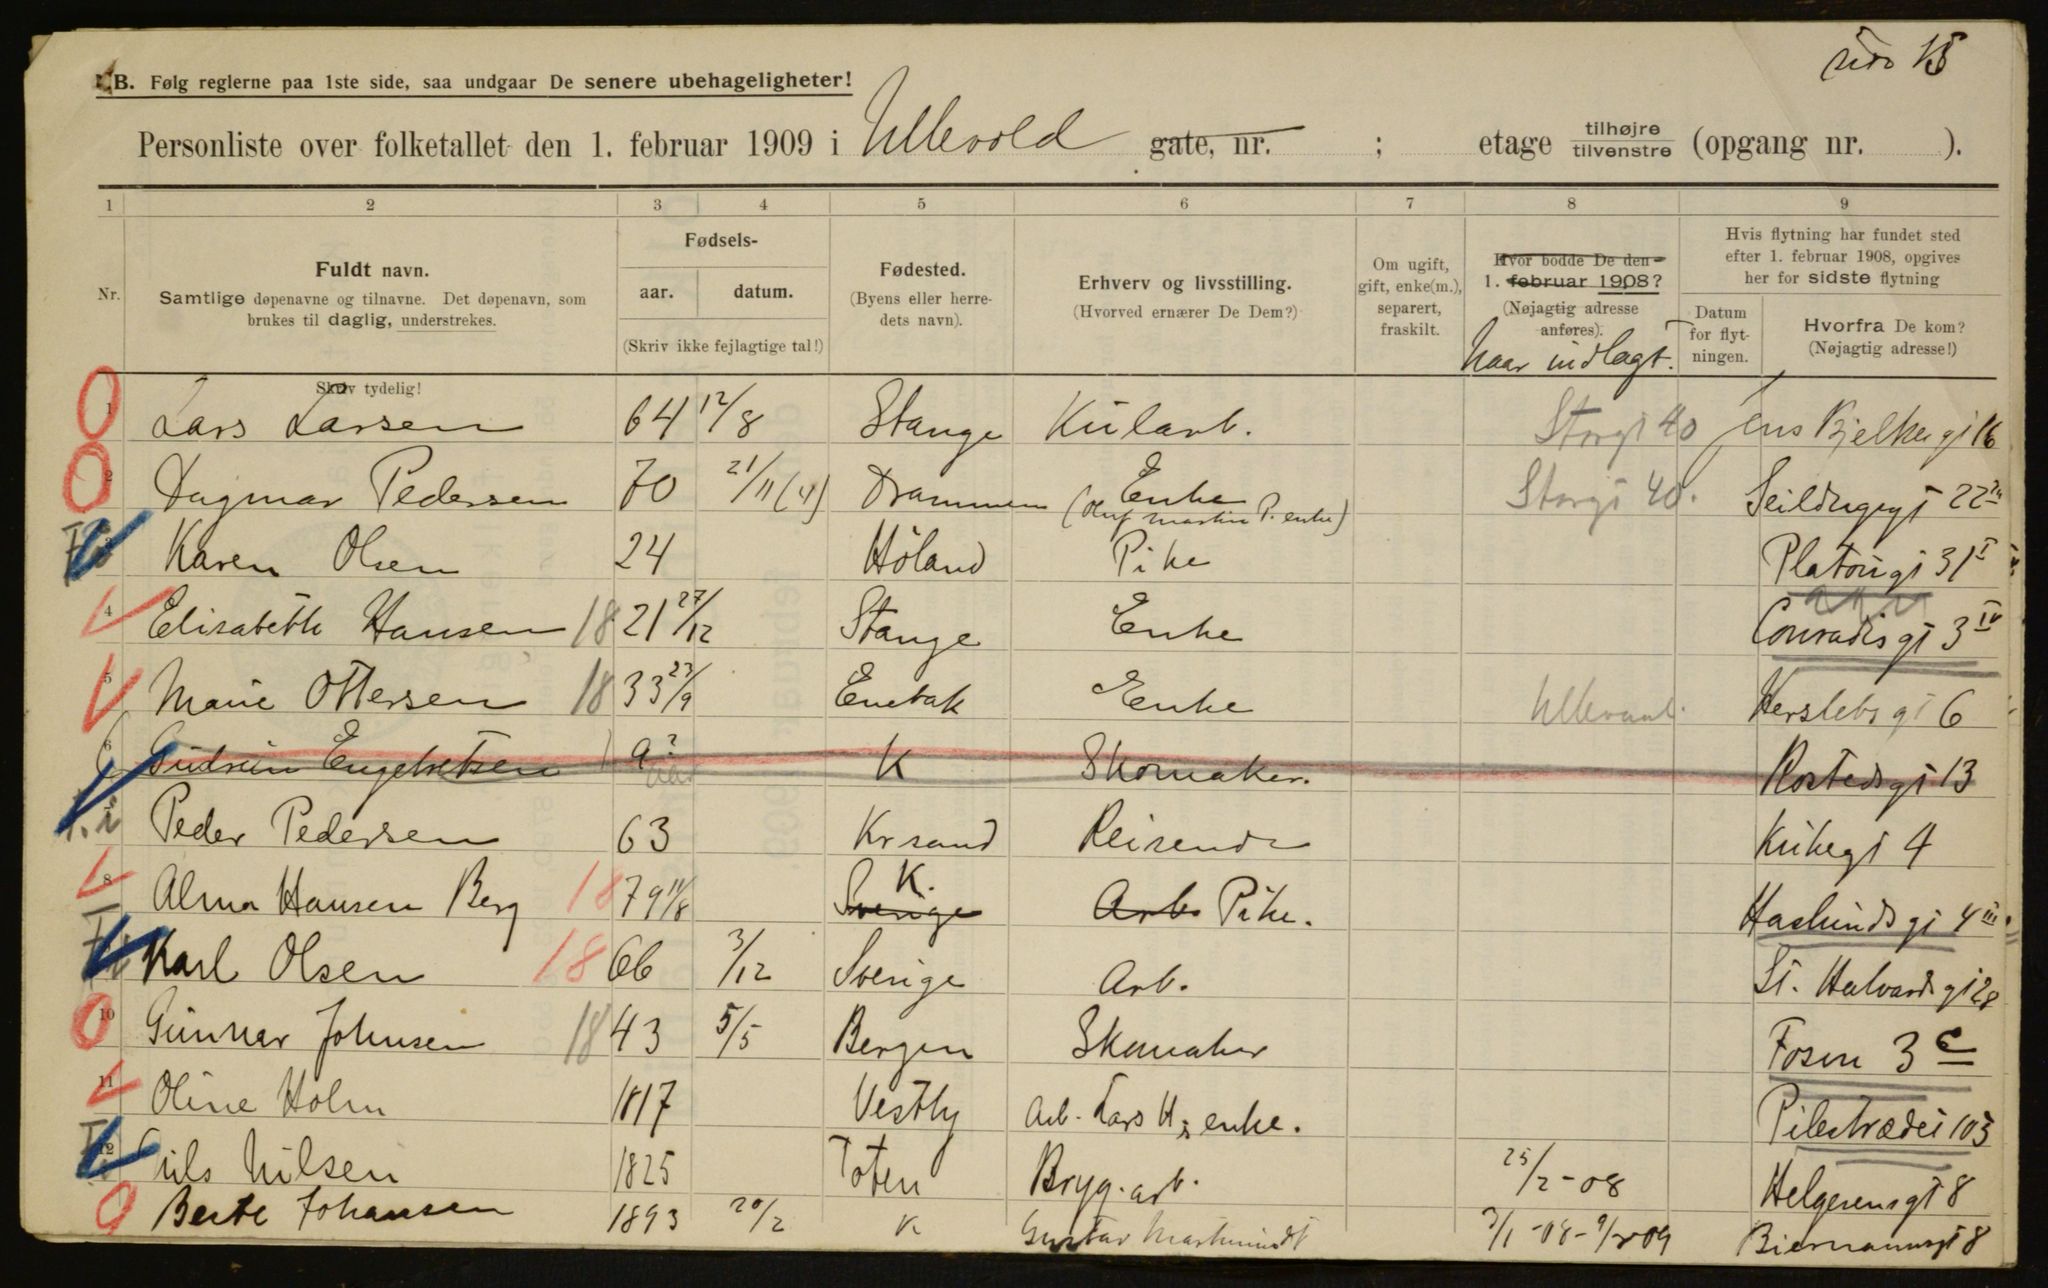 side 15
NB. Følg reglerne paa 1ste side, saa undgaar De senere ubehageligheter!
Personliste over folketallet den 1. februar 1909 i Ullevold gate, nr. ; etage tilhøjre tilvenstre (opgang nr. ).
1 2 3 4 5 6 7 8 9
Nr. Fuldt navn. Samtlige døpenavne og tilnavne. Det døpenavn, som brukes til daglig, understrekes.
Fødsels- aar. datum. (Skriv ikke fejlagtige tal!)
Fødested. (Byens eller herredets navn).
Erhverv og livsstilling. (Hvorved ernærer De Dem?)
Om ugift, gift, enke(m.), separert, fraskilt.
Hvor bodde De den 1. februar 1908? (Nøjagtig adresse anføres).
Naar indlagt.
Hvis flytning har fundet sted efter 1. februar 1908, opgives her for sidste flytning
Datum for flytningen. Hvorfra De kom? (Nøjagtig adresse!)
Skriv tydelig!
1 Lars Larsen 64 12/8 Stange Kularb. Storgt 40 Jens Bjelkesgt 16
2 Dagmar Pedersen 70 21/11 (4) Drammen Enke (Oluf Martin P. enke) Storgt 40. Seildugsgt 22
3 Karen Olsen 24 Höland Pike Platousgt 31 I
4 Elisabeth Hansen 18 21 27/12 Stange Enke Conradisgt 3 IV
5 Marie Ottersen 18 33 23/9 Enebak Enke Ullevaal. Herslebsgt 6
6 Gudrun Engebretsen 9? K Skomaker. Rostedsgt 13
Peder Pedersen 63 Krsand Reisende Kirkegt 4
8 Alma Hansen Berg 18 79 11/8 Sverige K. Arb. Pike. Haslundsgt 4 III
Karl Olsen 18 66 3/12 Sverige Arb. St. Halvardsgt 28
10 Gunnar Johnsen 18 43 5/5 Bergen Skomaker Fosen 3 c
11 Oline Holm 1817 Vestby Arb. Lars H.s enke. Pilestrædet 103
12 Nils Nilsen 1825 Toten Bryg. arb. 25/2-08 Helgesensgt 8
Berte Johansen 1893 20/2 K Gustav 3/1-08- 9/2 09 Biermannsgt 8